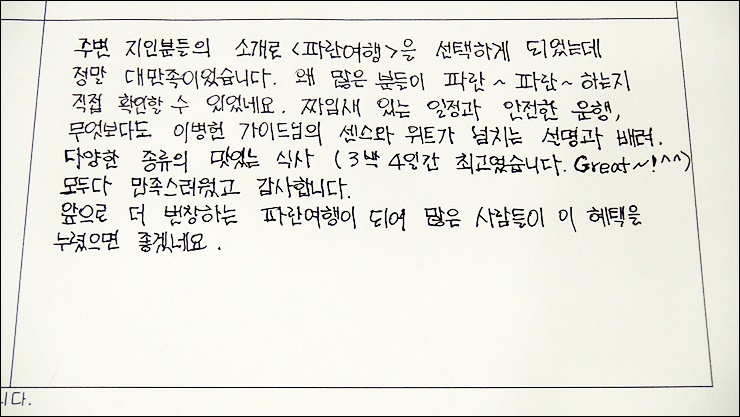 주변 지인분들의 소개로 <파란여행>을 선택하게 되었는데
정말 대만족이었습니다. 왜 많은 분들이 파란~ 파란~ 하는지
직접 확인할 수 있었네요. 짜임새 있는 일정과 안전한 운행,
무엇보다도 이병헌 가이드님의 센스와 위트가 넘치는 설명과 배려.
다양한 종류의 맛있는 식사 (3박 4일간 최고였습니다. Great~!^^)
모두다 만족스러웠고 감사합니다.
앞으로 더 번창하는 파란여행이 되어 많은 사람들이 이 혜택을
누렸으면 좋겠네요.
니다.